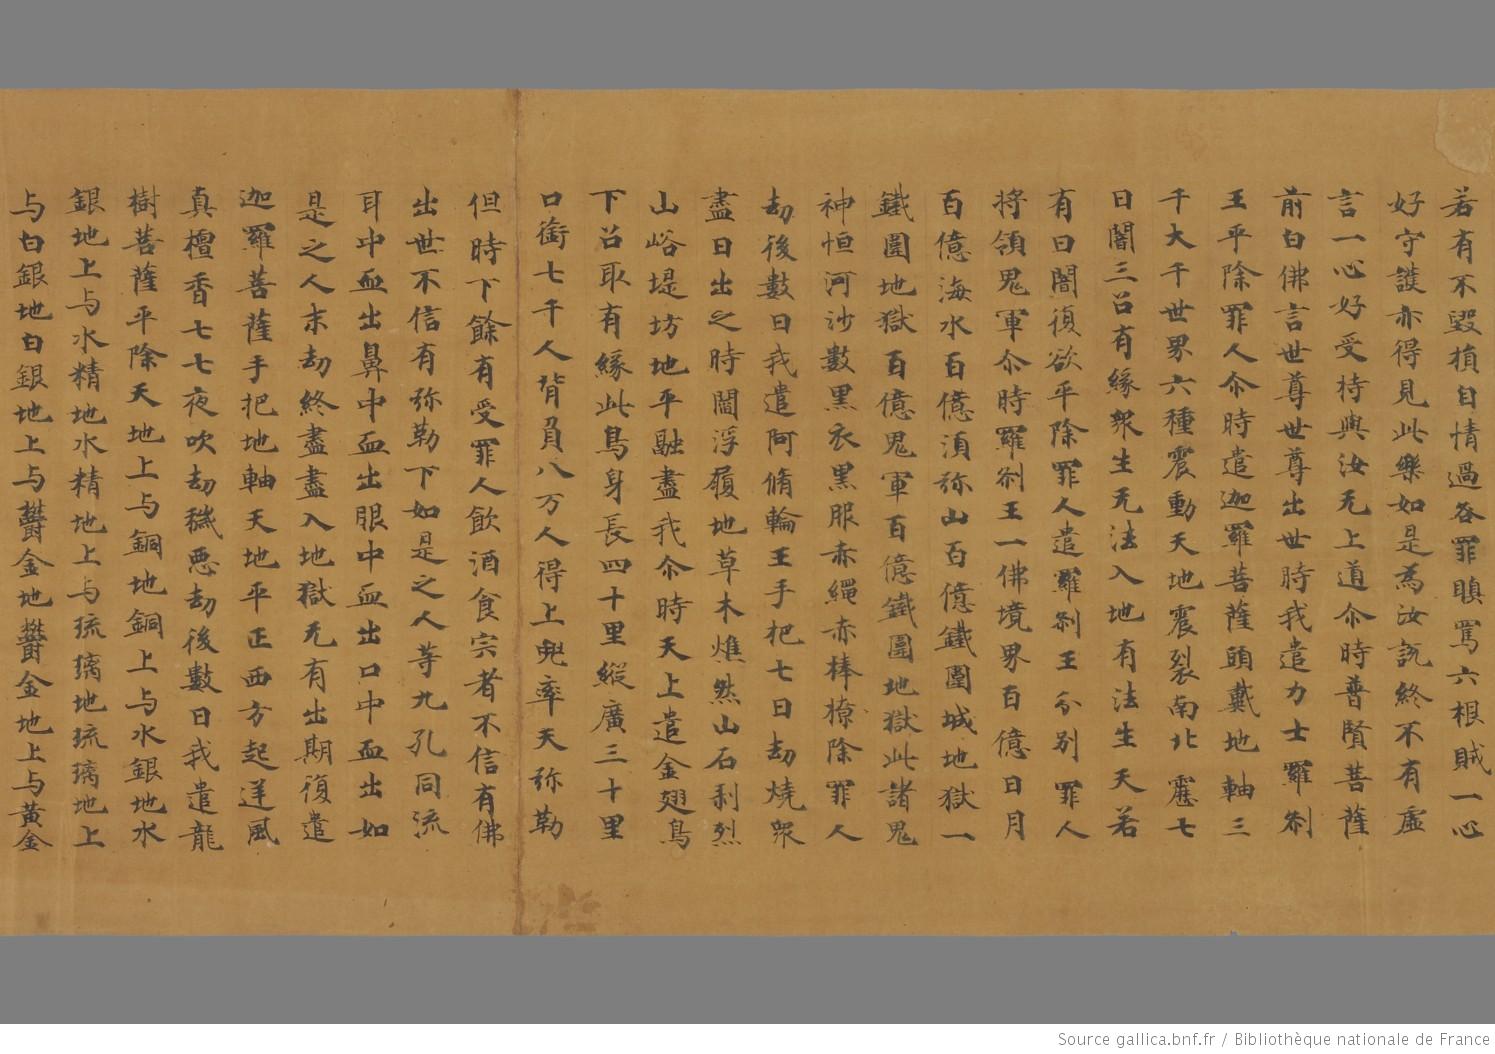 若有不毀損自情過各罪瞋罵六根賊一心
好守護亦得見此樂如是為汝說終不有虛
言一心好受持與汝无上道尒時普賢菩薩
前白佛言世尊世尊出世時我遣力士羅剎
王平除罪人尒時遣迦羅菩薩頭戴地軸三
千大千世界六種震動天地震裂南北應七
日闇三召有緣眾生无法入地有法生天若
有日闇復欲平除罪人遣羅剎王分別罪人
將領鬼軍尒時羅剎王一佛境界百億日月
百億海水百億須弥山百億鐵圍城地獄一
鐵圍地獄百億鬼軍百億鐵圍地獄此諸鬼
神恒河沙數黑衣黑服赤繩赤棒撩除罪人
劫後數日我遣阿脩輪王手把七日劫燒眾
盡日出之時閻浮履地草木燋然山石剝烈
山峪堤坊地平融盡我尒時天上遣金翅鳥
下召取有緣此鳥身長四十里縱廣三十里
口銜七千人背負八万人得上兜率天弥勒
但時下餘有受罪人飲酒食宍者不信有佛
出世不信有弥勒下如是之人等九孔同流
耳中血出鼻中血出眼中血出口中血出如
是之人末劫終盡盡入地獄无有出期復遣
迦羅菩薩手把地軸天地平正西方起逆風
真檀香七七夜吹劫穢惡劫後數日我遣龍
樹菩薩平除天地上与銅地銅上与水銀地水
銀地上与水精地水精地上与琉璃地琉璃地上
与白銀地白銀地上与欝金地欝金地上与黃金
Source gallica.bnf.fr / Bibliothèque nationale de France